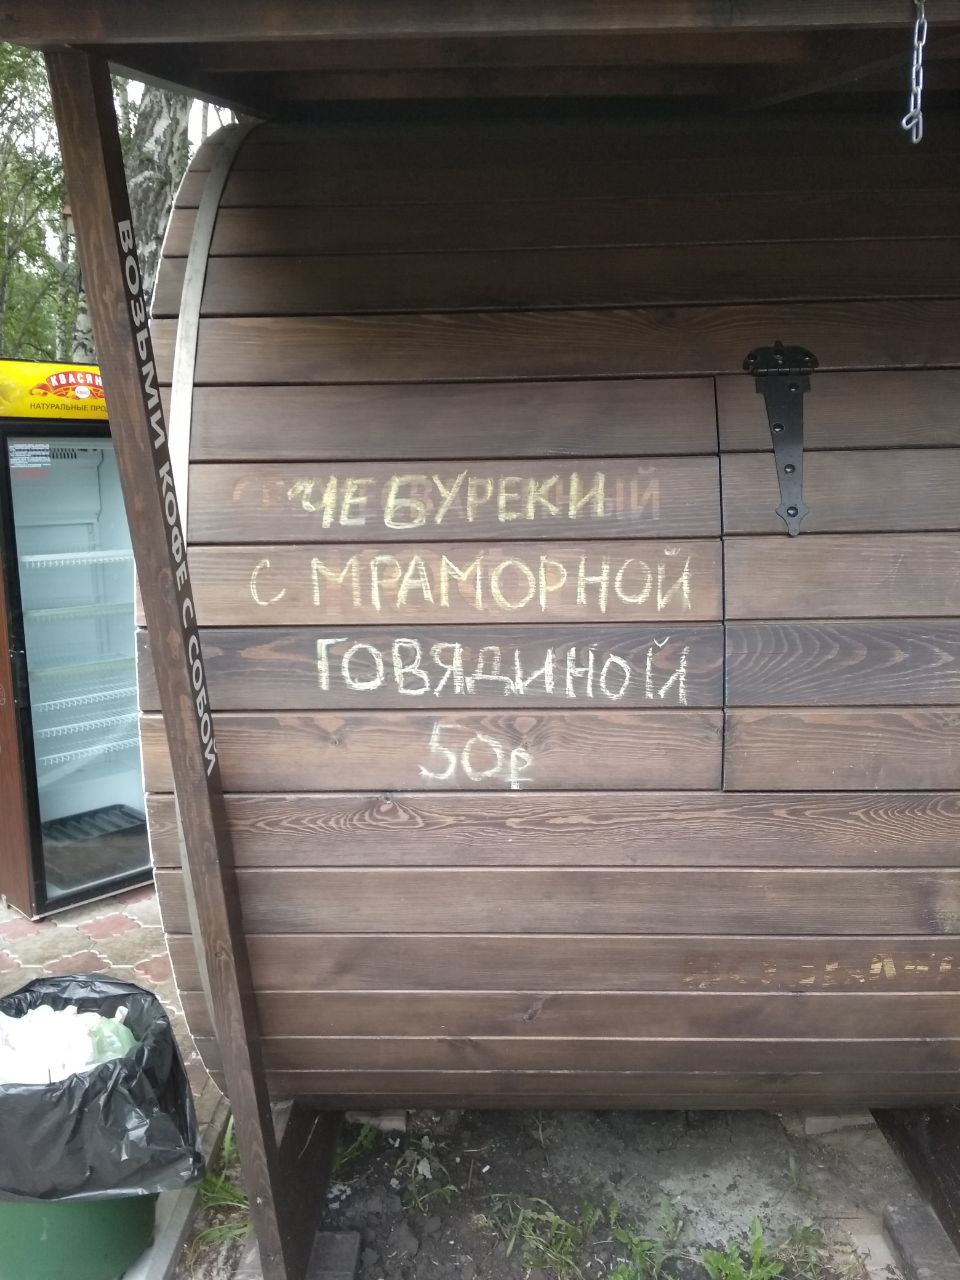 ВОЗЬМИ КОФЕ С СОБОЙ
КВАСЯН
НАТУРАЛЬНЫЕ
ЧЕБУРЕКИ
С МРАМОРНОЙ
ГОВЯДИНОЙ
50р